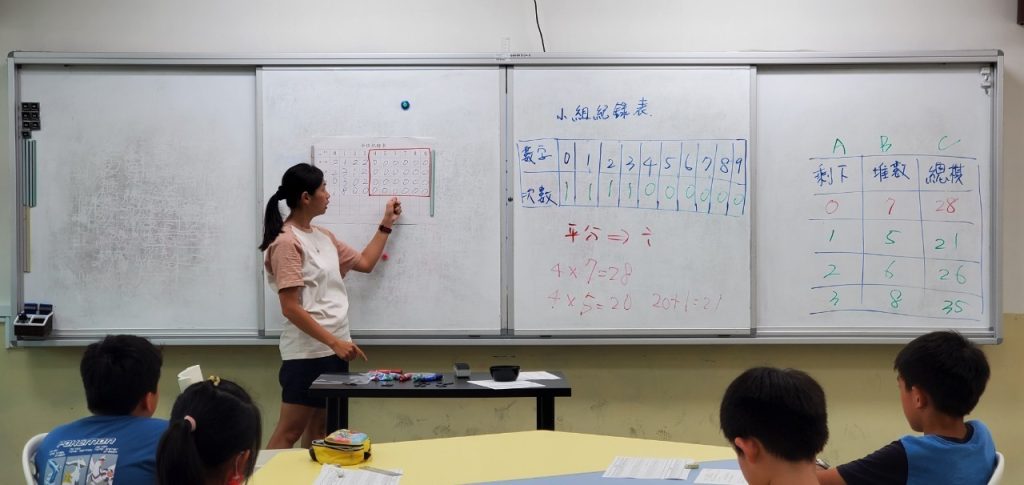 小組紀錄表
數字 0 1 2 3 4 5 6 7 8 9
次數 1 1 1 1 0 0 0 0 0 0
平分 => ÷
4 × 7 = 28
4 × 5 = 20 20+1=21
A B C
剩下 堆數 總棋
0 7 28
1 5 21
2 6 26
3 8 35